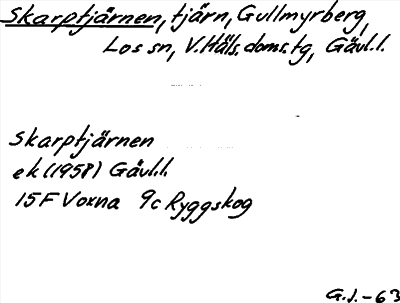 Skarptjärnen, tjärn, Gullmyrberg,
Los sn, V. Häls. doms. tg, Gävl.l.
Skarptjärnen
ek (1958) Gävl.l.
15F Voxna 9c Ryggskog
G.J.-63